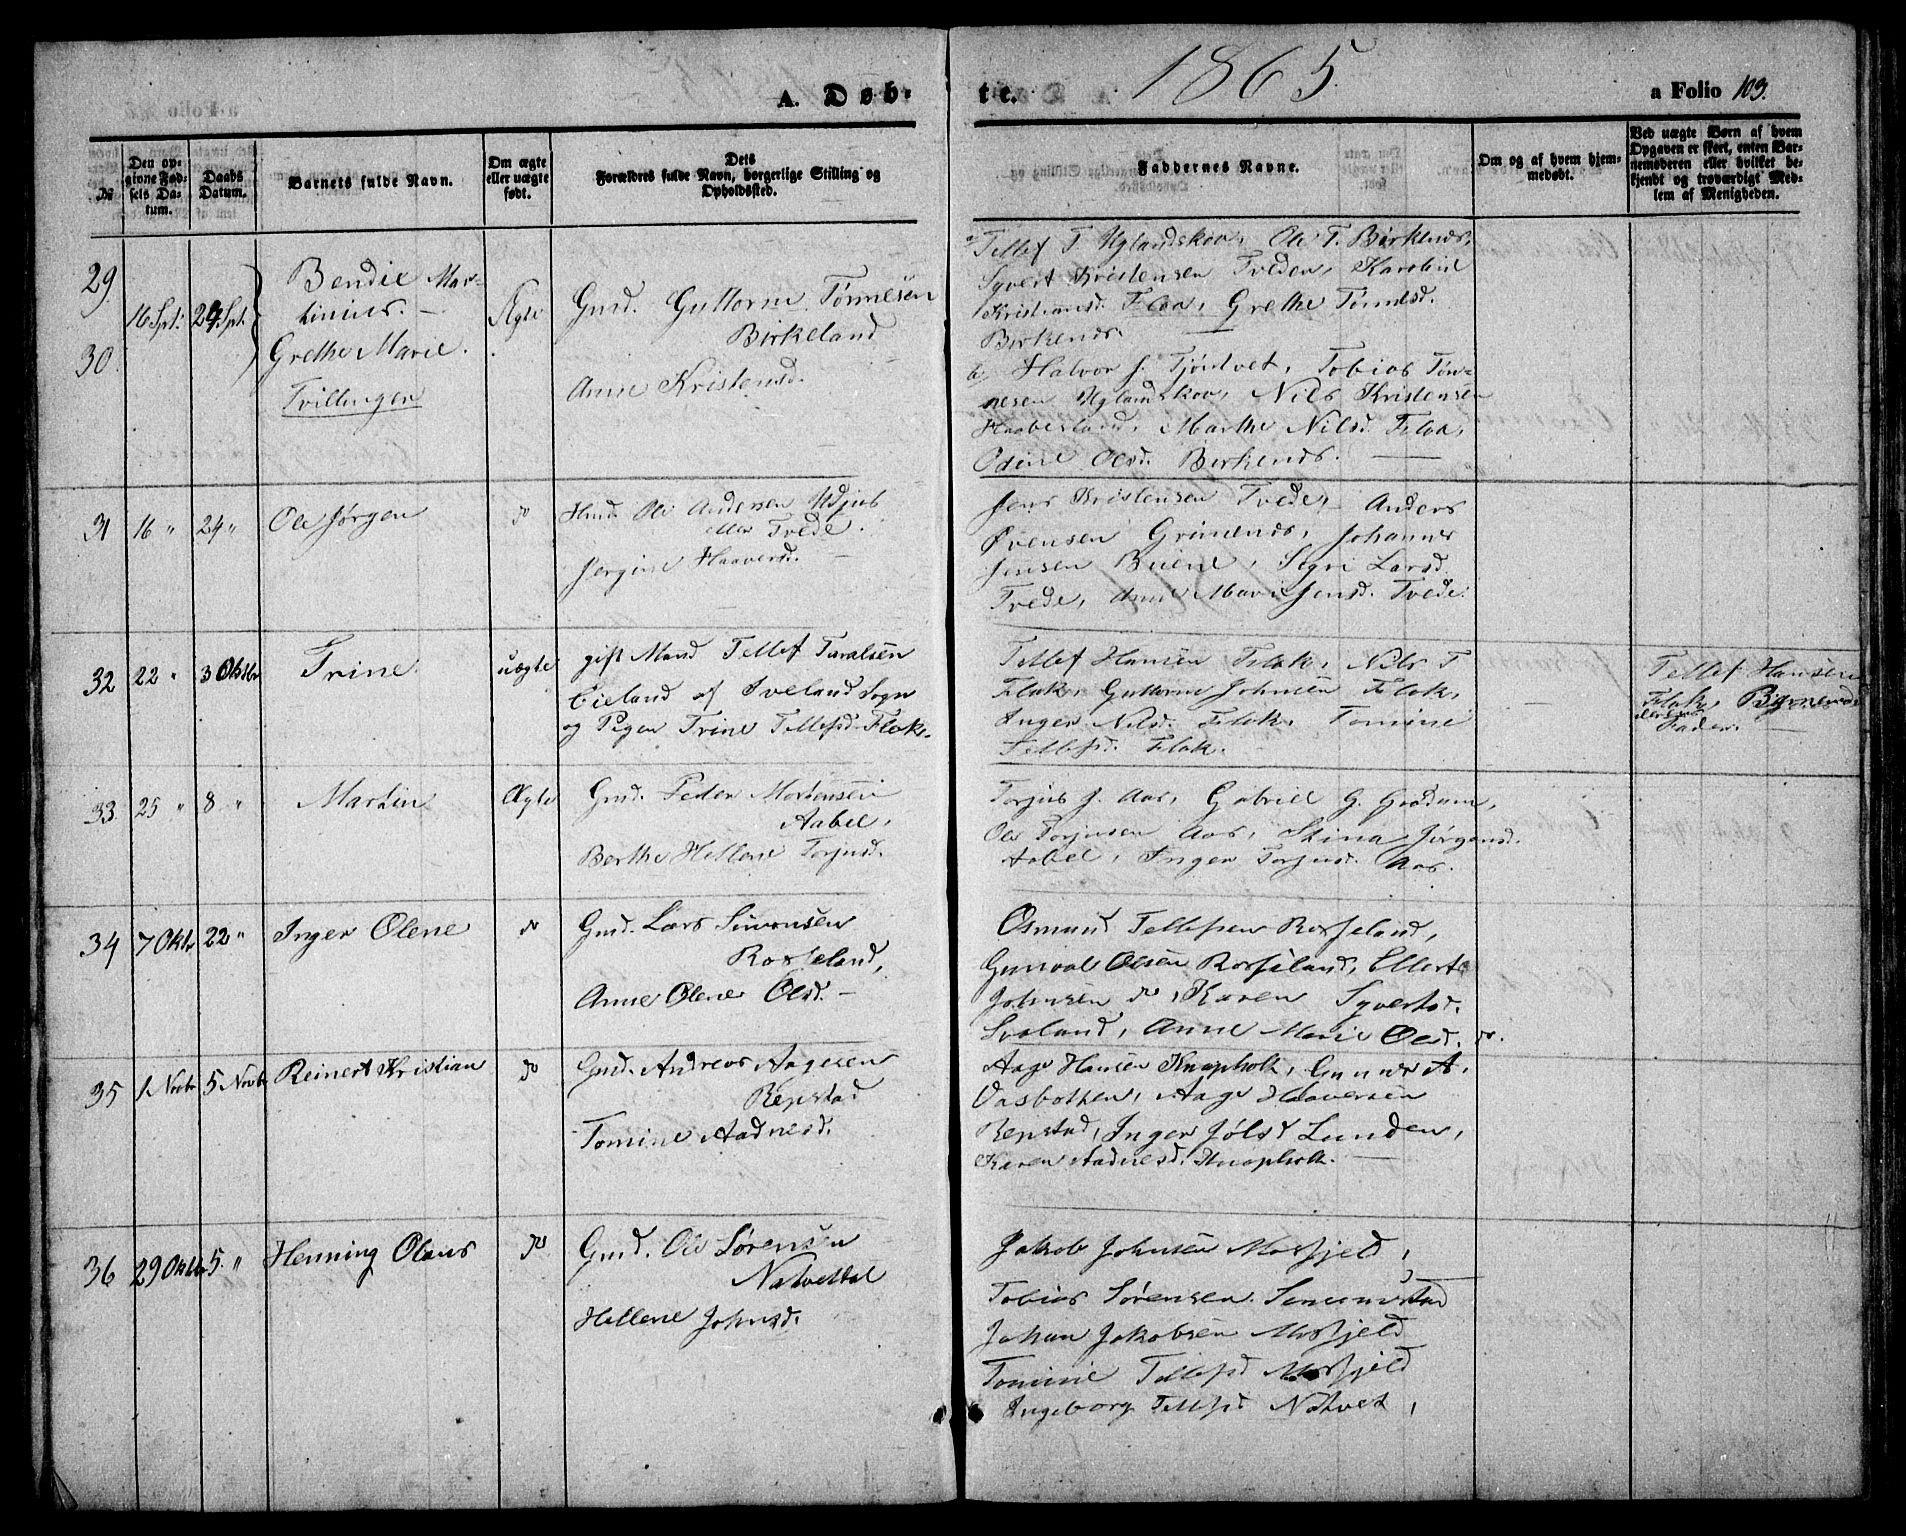 1865.
A. Døb-
te.
a Folio 103.
№
Den op-
givne Fød-
sels Da-
tum.
Daabs
Datum.
Barnets fulde Navn.
Om ægte
eller uægte
født.
Dets
Forældres fulde Navn, borgerlige Stilling og
Opholdssted.
Faddernes Navne.
Om og af hvem hjem-
medøbt.
Ved uægte Børn af hvem
Opgaven er skeet, enten Bar-
nemoderen eller hvilket be-
kjendt og troværdigt Med-
lem af Menigheden.
29
30.
16 Spt. 24 Spt.
Bendix Mar-
tinius. —
Grethe Marie.
Tvillinger
Ægte
Gmd. Guttorm Tønnesen
Birkeland
Anne Kristensd.
a, Tellef T. Uglandskov, Ole T. Birkends,
Syvert Kristensen Tveden, Karoline
Kristiansd. Flaa, Grethe Tønnesd.
Birkends.
b, Halvor J. Tjøntvet, Tobias Tøn-
nesen Uglandskov, Nils Kristensen
Haaberland, Marthe Nilsd. Flaa,
Odine Olsd. Birkends. —
31 16 " 24 "
Ole Jørgen
do
Hmd. Ole Andersen Udjus
eller Tvede.
Jørgine Haaversd. —
Jens Kristensen Tvede, Anders
Øvensen Grimends, Johannes
Jensen Buene, Sigri Larsd.
Tvede, Anne Marie Jensd. Tvede.
32 22 " 3 Oktbr
Trine.
uægte
gift Mand Tellef Taralsen
Eieland af Iveland Sogn
og Pigen Trine Tellefsd. Flak.
Tellef Hansen Flak, Nils T.
Flak, Guttorm Johnsen Flak,
Anger Nilsd. Flak, Tomine
Tellefsd. Flak.
—
Tellef Hansen
Flak,
Fader. —
33 25 " 8 "
Martin
Ægte
Gmd. Peder Mortensen
Aabel,
Berthe Hellene Torjusd.
Torjus J. Aas, Gabriel G. Grødum,
Ole Torjusen Aas, Stina Jørgensd.
Aabel, Inger Torjusd. Aas.
34 7 Oktbr 22 "
Inger Olene
do
Gmd. Lars Simonsen
Rosseland,
Anne Olene Olsd. —
Osmund Tellefsen Rosseland,
Gunval Olsen Rosseland, Ellert
Johnsen do, Karen Syvertsd.
Svaland, Anne Marie Olsd. do.
35 1 Novbr 5 Novbr
Reinert Kristian
do
Gmd. Andreas Aagesen
Repstad
Tomine Aadnesd.
Aage Hansen Knapholt, Gunner A.
Vasbotten, Aage Haaversen
Repstad, Inger Jølsd Lunden,
Karen Aadnesd. Knapholt. —
36 29 Oktbr 5 "
Henning Olaus
do
Gmd. Ole Sørensen
Natvetdal
Hellene Johnsd.
Jakob Johnsen Mosfjeld,
Tobias Sørensen Senumstad
Johan Jakobsen Mosfjeld
Tomine Tellefsd Mosfjeld
Ingeborg Tellefsd Natvet,